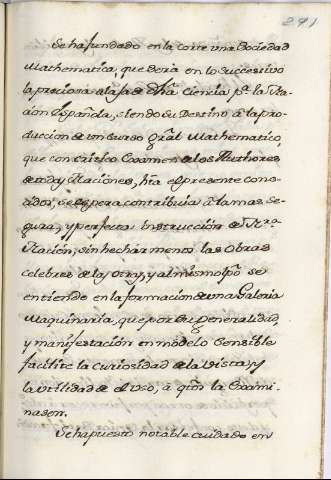 291
Se ha fundado en la corte una Sociedad
Mathematica, que sera en lo succesivo
la preciosa alaja de dha Ciencia pa. la Na-
ción Española, siendo su Destino a la pro-
duccion de un curso gral Mathematico,
que con critico Examen de los Authores
de toda Naciones, hta el presente cono-
cidos, se espera contribuia à la mas se-
gura, y perfecta instrucción de Nra
Nación, sin hechar menos las Obras
celebres de las otras, y al mismo tpo se
entiende en la formacion de una Galeria
Maquinaria, que por su generalidad,
y manifestación en modelo sensible
facilite la curiosidad de la vista, y
la utilidad de el uso, à qtos la Exami-
nasen.
Se ha puesto notable cuidado en